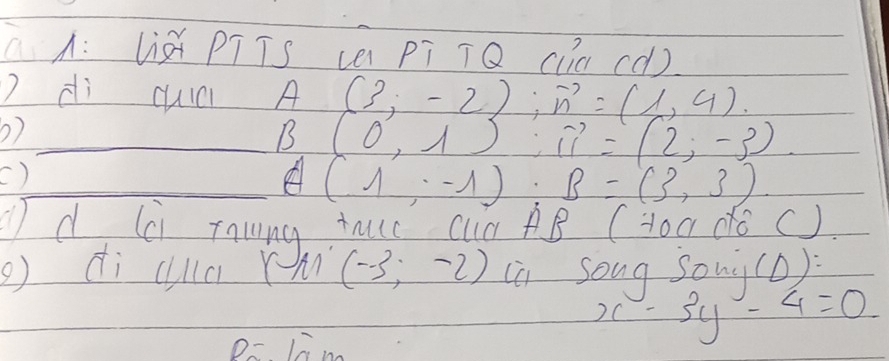 1: Viết PTTS và PTTQ của (d)
) đi qua A (3; -2); n⃗ = (1, 4).
b) ____ B (0, 1); n⃗ = (2; -3)
c) ____ A (1; -1). B = (3, 3)
d) d là trung trực của AB (toạ độ C).
e) đi qua M (-3; -2) và song song (D):
x - 3y - 4 = 0
Bài làm